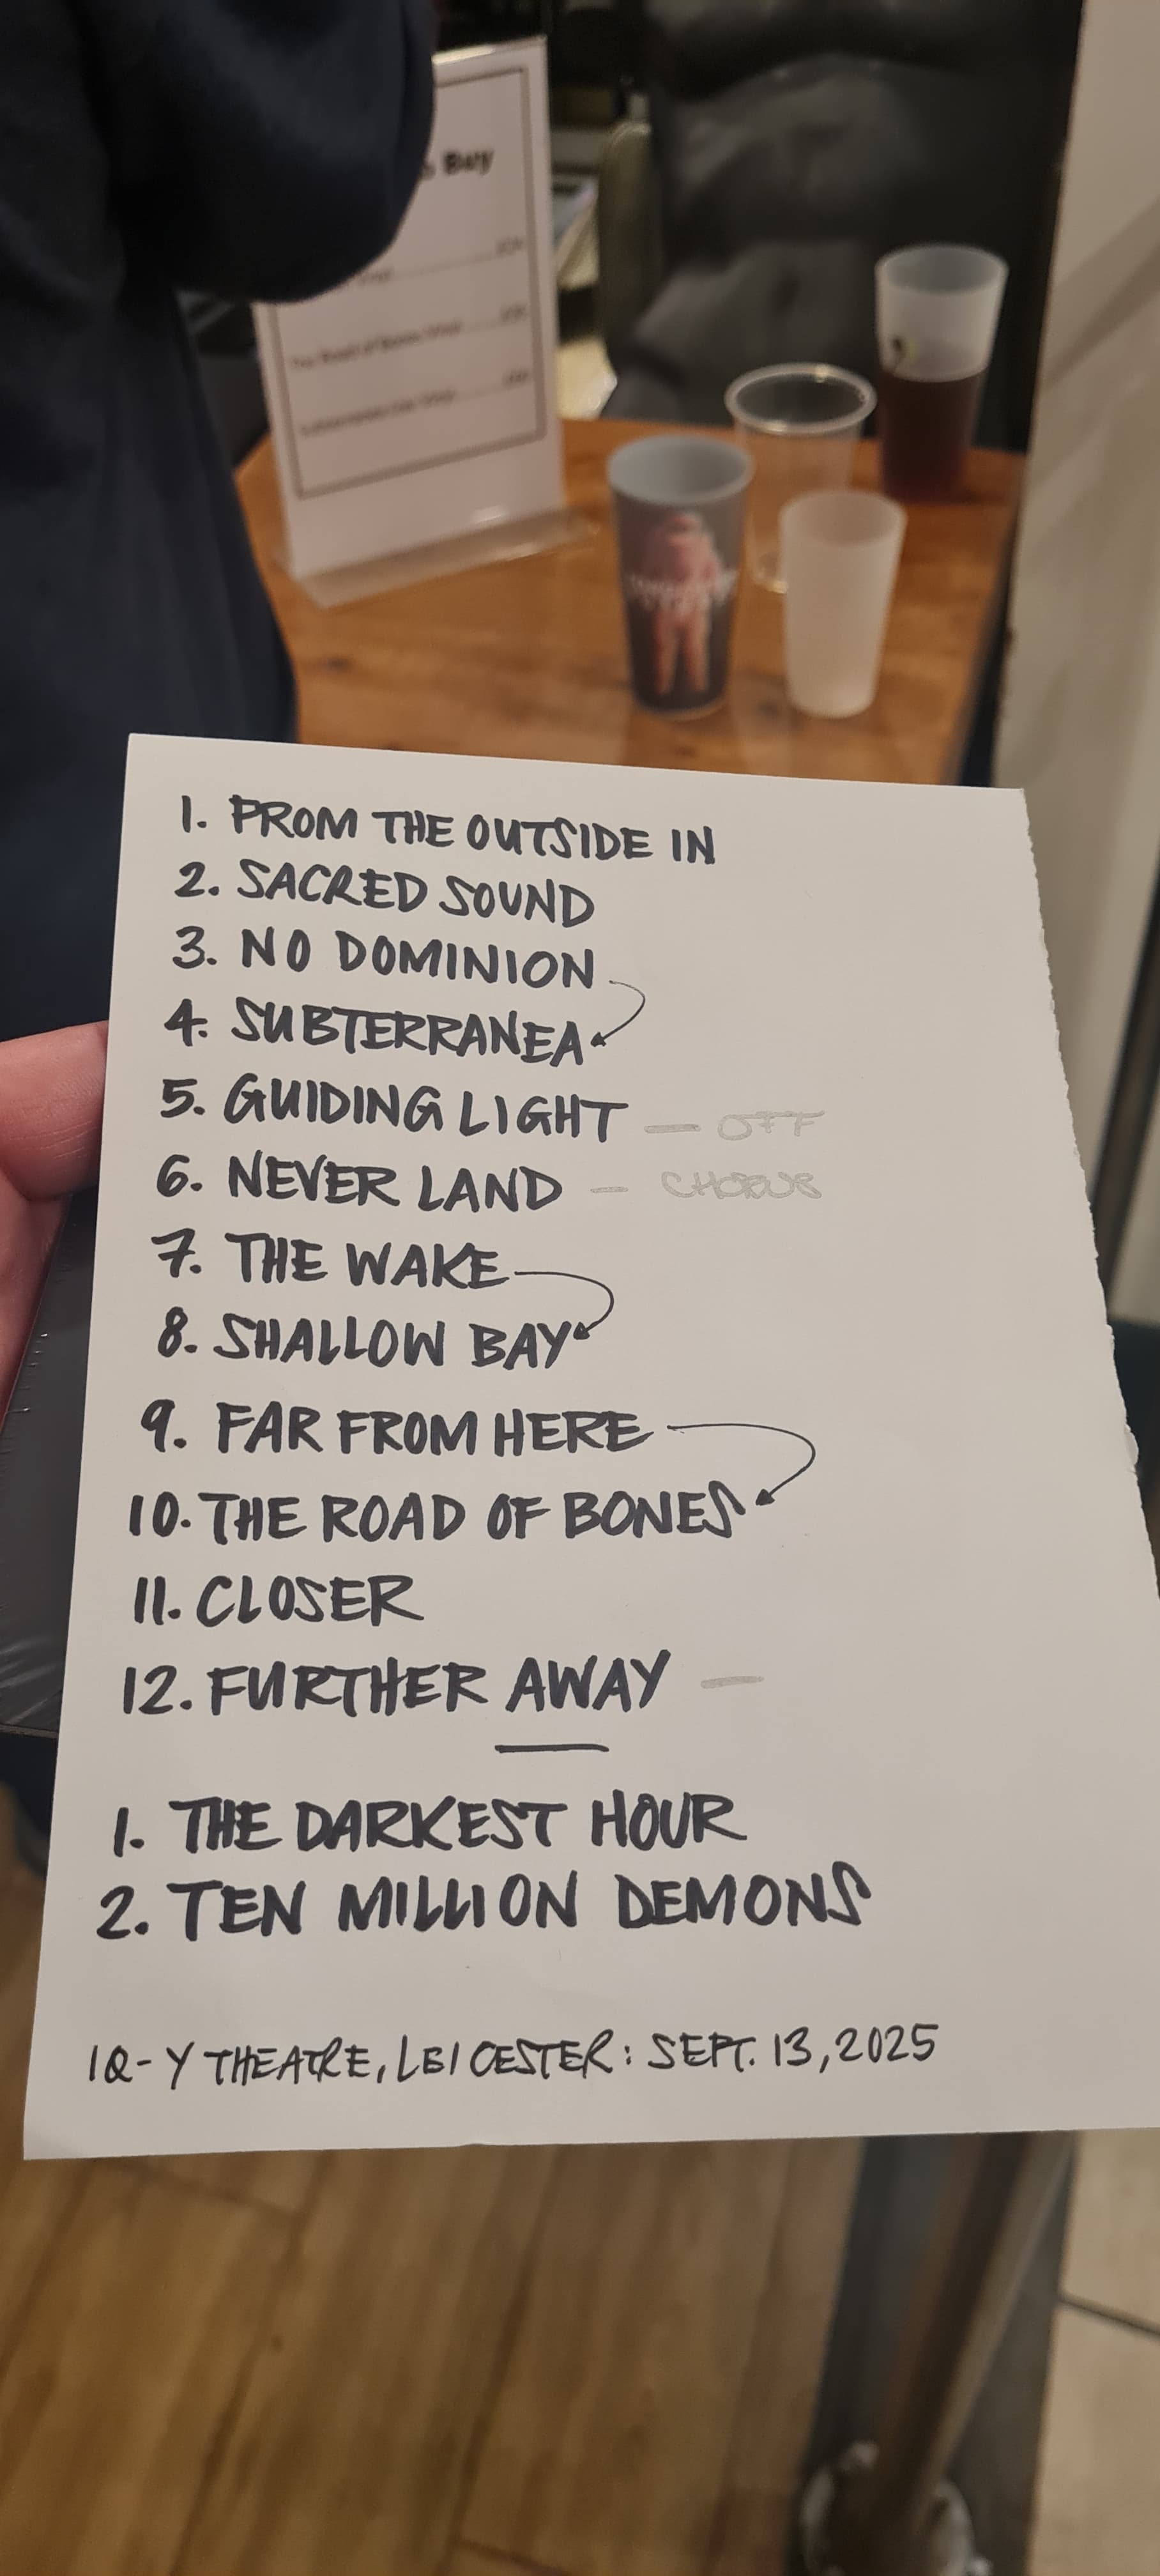 Bay
The Road of Bones Vinyl
1. FROM THE OUTSIDE IN
2. SACRED SOUND
3. NO DOMINION
4. SUBTERRANEA
5. GUIDING LIGHT — OFF
6. NEVER LAND — CHORUS
7. THE WAKE
8. SHALLOW BAY
9. FAR FROM HERE
10. THE ROAD OF BONES
11. CLOSER
12. FURTHER AWAY —
1. THE DARKEST HOUR
2. TEN MILLION DEMONS
IQ - Y THEATRE, LEICESTER: SEPT. 13, 2025